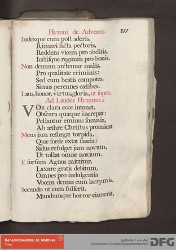 Hymni de Adventu.
Iudexque cum post aderis,
Rimari facta pectoris,
Reddens vicem pro abditis,
Iustisque regnum pro bonis.
Non demum arctemur malis
Pro qualitate criminis:
Sed cum beatis compotes
Simus perennes cælibes.
Laus, honor, virtus, gloria, ut supra
Ad Laudes Hymnus:
Vox clara ecce intonat,
Obscura quæque increpat:
Pellantur eminus somnia,
Ab æthere Christus promicat
Mens iam resurgat torpida,
Quæ sorde extat saucia:
Sidus refulget iam novum,
Ut tollat omne noxium.
E sursum Agnus mittitur
Laxare gratis debitum,
Omnes pro indulgentia
Vocem demus cum lacrymis.
Secundo ut cum fulserit
Mundumque horror cinxerit
DFG